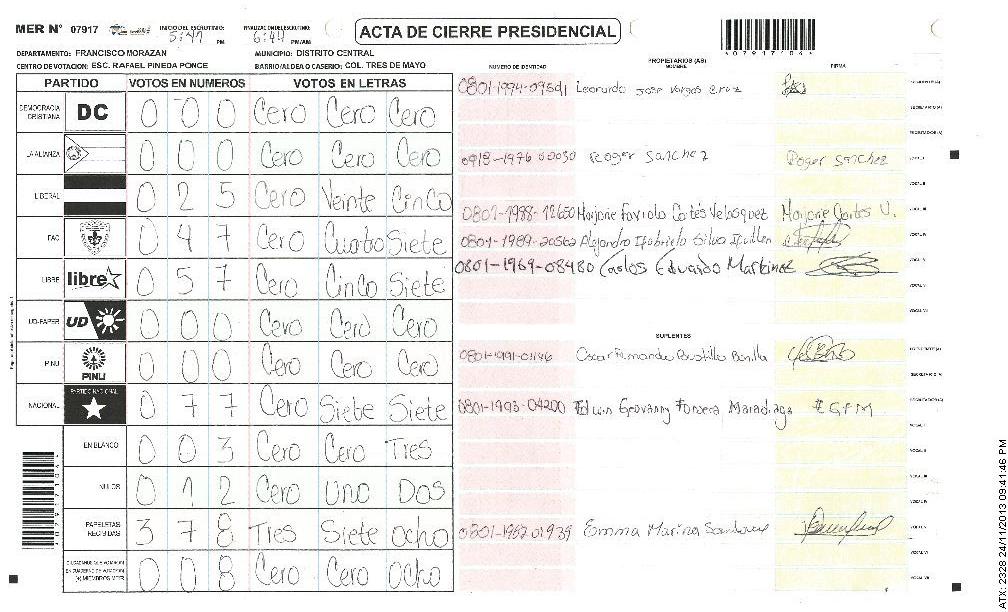 MER N° 07917
INICIO DEL ESCRUTINIO: 5:47 PM
FINALIZACION DEL ESCRUTINIO: 6:44 PM/AM
ACTA DE CIERRE PRESIDENCIAL
07917104
DEPARTAMENTO: FRANCISCO MORAZAN MUNICIPIO: DISTRITO CENTRAL
CENTRO DE VOTACION: ESC. RAFAEL PINEDA PONCE BARRIO/ALDEA O CASERIO: COL. TRES DE MAYO
PARTIDO VOTOS EN NUMEROS VOTOS EN LETRAS
DEMOCRACIA CRISTIANA DC 0 0 0 Cero Cero Cero
LA ALIANZA 0 0 0 Cero Cero Cero
LIBERAL 0 2 5 Cero Veinte Cinco
FAC 0 4 7 Cero Cuatro Siete
LIBRE libre 0 5 7 Cero Cinco Siete
UD-FAPER UD 0 0 0 Cero Cero Cero
PINU PINU 0 0 0 Cero Cero Cero
NACIONAL PARTIDO NACIONAL 0 7 7 Cero Siete Siete
EN BLANCO 0 0 3 Cero Cero Tres
NULOS 0 1 2 Cero Uno Dos
PAPELETAS RECIBIDAS 3 7 8 Tres Siete Ocho
(+) MIEMBROS MER 0 0 8 Cero Cero Ocho
NUMERO DE IDENTIDAD PROPIETARIOS (AS) NOMBRE FIRMA
0801-1974-09591 Leonardo Jose Vargas Cruz
0918-1976 00030 Roger Sanchez Roger Sanchez
0801-1988-12650 Marjorie Faviola Cortés Velasquez Marjorie Cortes V.
0801-1989-20562 Alejandro
0801-1969-08480 Carlos Eduardo Martinez
SUPLENTES
0801-1991-01146 Oscar Fernando Bustillo Bonilla
0801-1993-04200 Edwin Geovanny Fonseca Maradiaga E G F M
0801-1982-01939 Emma Marina Sandoval
ATX: 2328 24/11/2013 09:41:46 PM